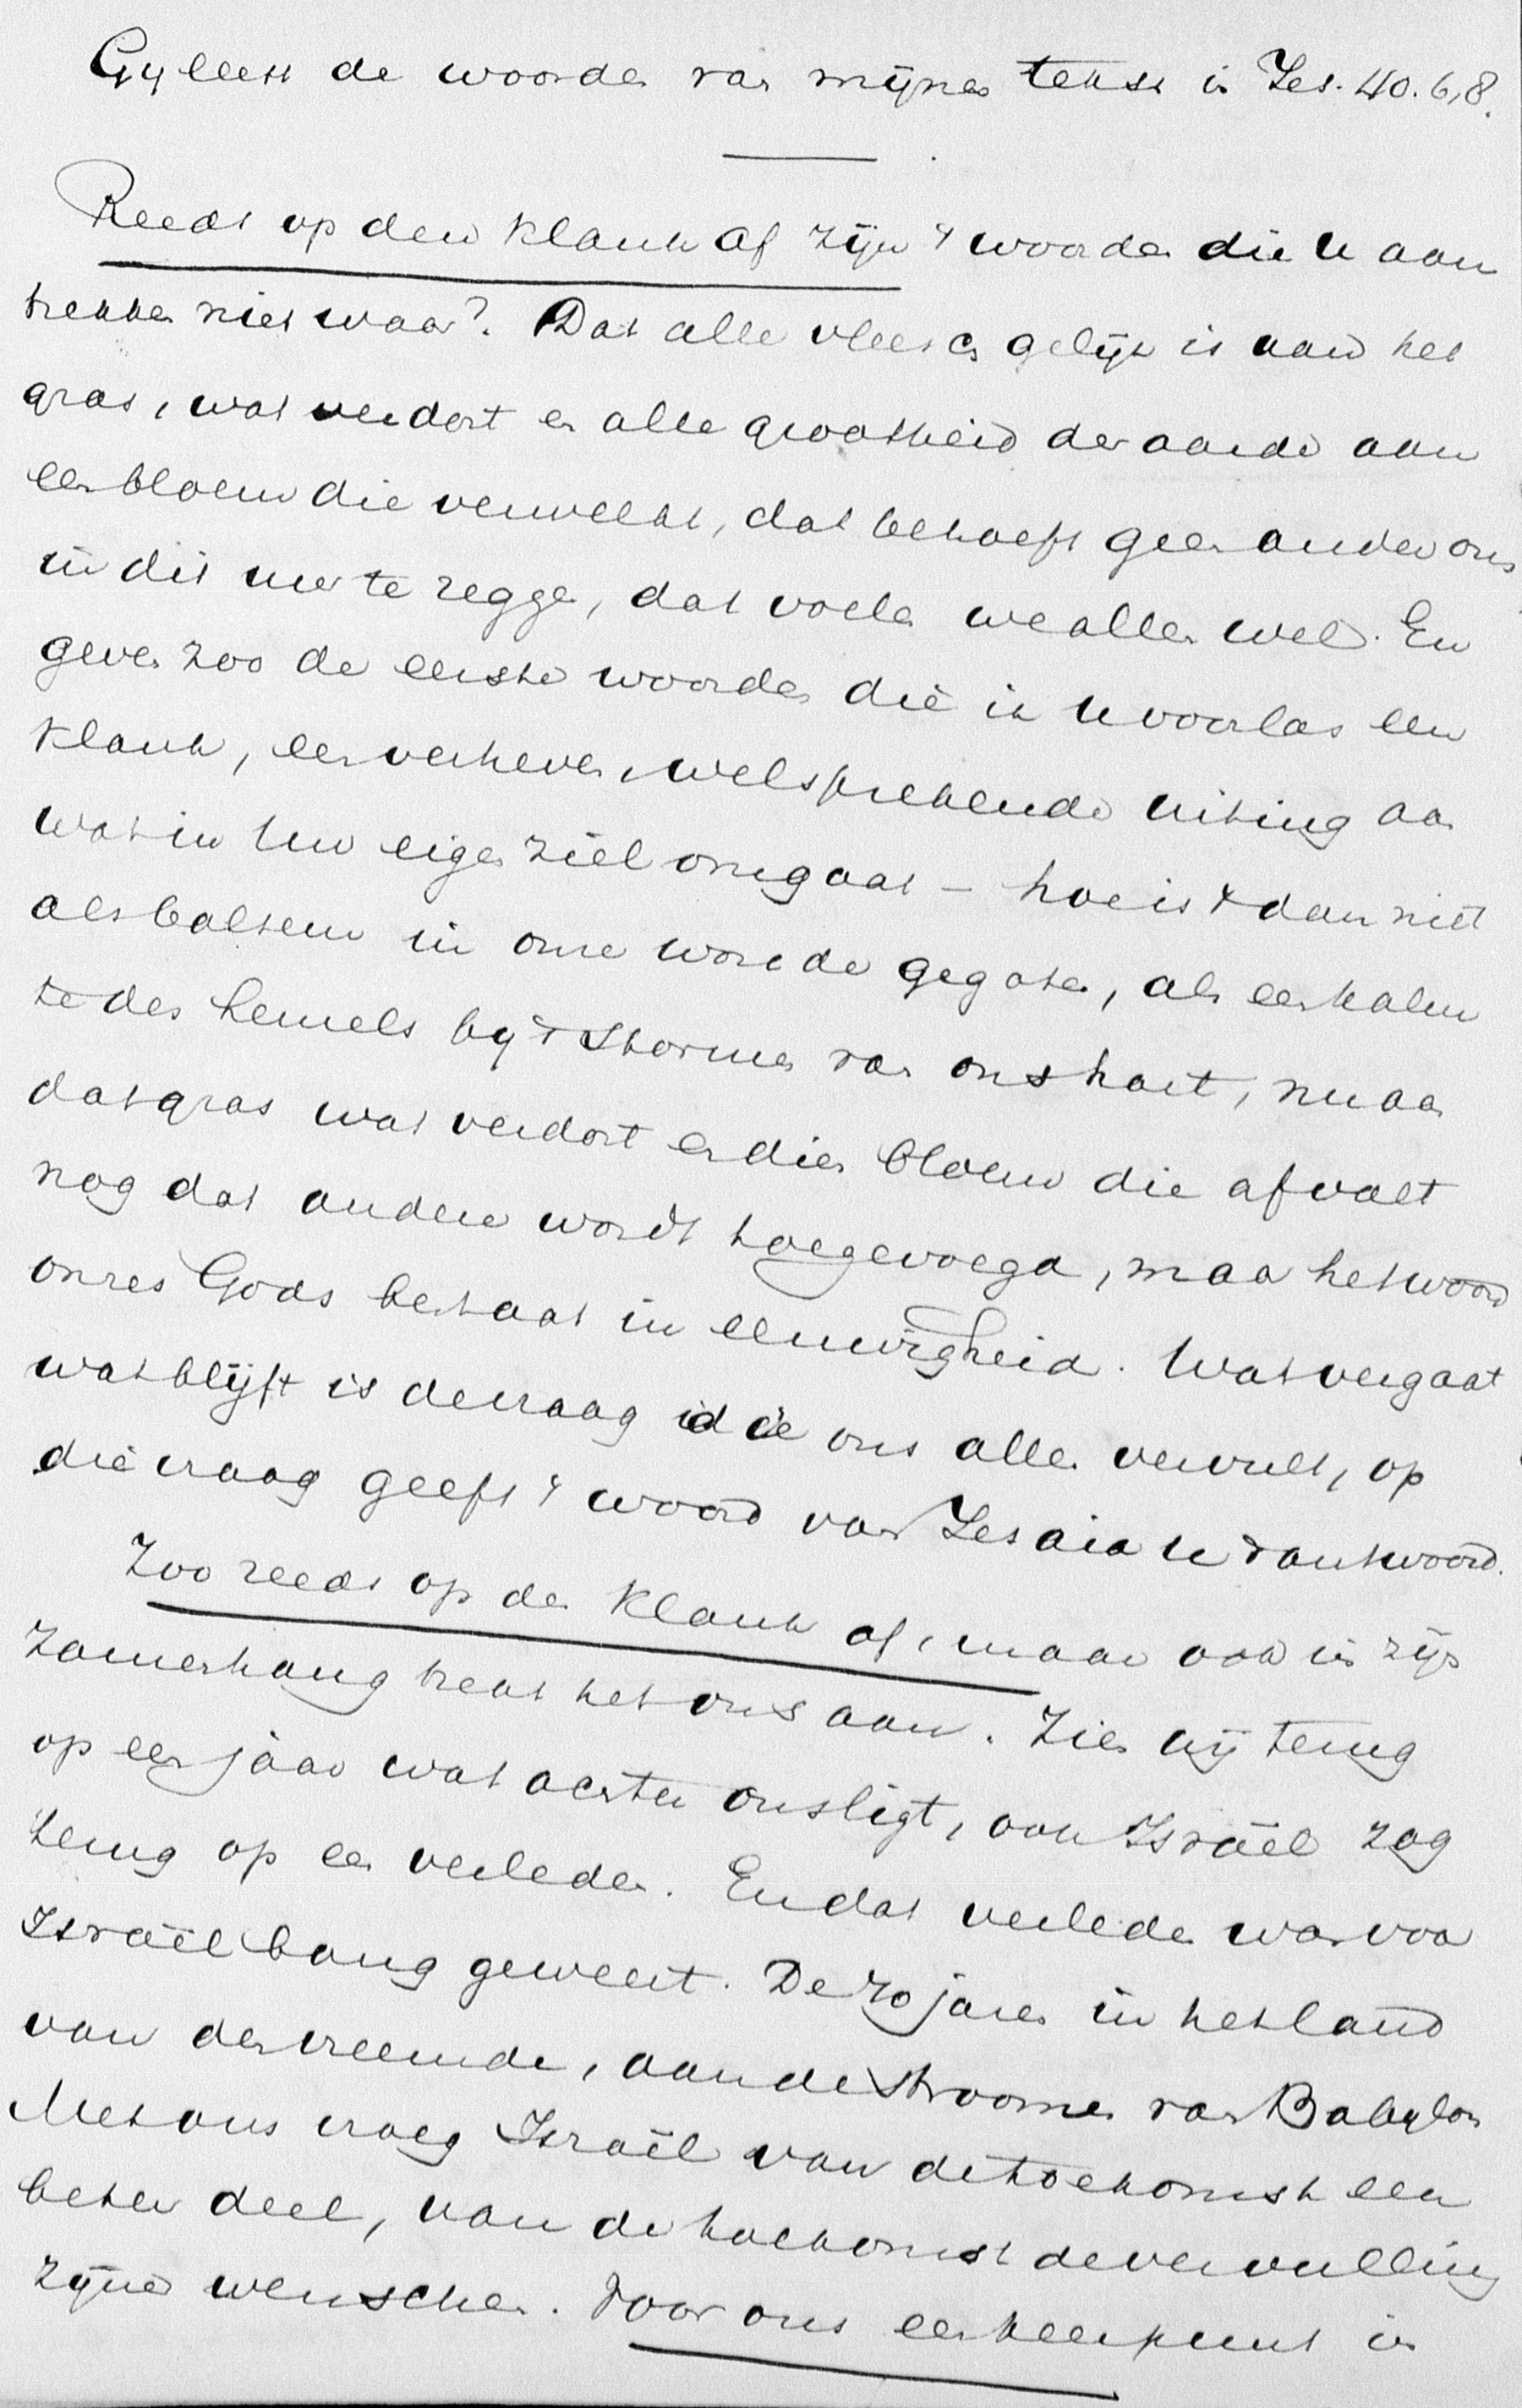 Gy leest de woorden van mijnen tekst in Jes. 40. 6,8.
Reeds op den klank af zijn 't woorden die U aan
trekken niet waar? Dat alle vleesch gelijk is aan het
gras, wat verdort en alle grootheid der aarde aan
een bloem die verwelkt, dat behoeft geen ander ons
in dit uur te zeggen, dat voelen we allen wel. En
geven zoo de eerste woorden die ik U voorlas een
klank, een verheven, welsprekende uiting aan
wat in Uw eigen ziel omgaat – hoe is 't dan niet
als balsem in onze wonde gegoten, als een kalm
te des hemels by 't stormen van ons hart, nu aan
dat gras wat verdort en dien bloem die afvalt
nog dat andere wordt toegevoegd, maar het woord
onzes Gods bestaat in eeuwigheid. Wat vergaat
wat blijft is de vraag die ons allen vervult, op
die vraag geeft 't woord van Jesaia U 't antwoord.
Zoo reeds op den klank af, maar ook in zijn
zamenhang trekt het ons aan. Zien wij terug
op een jaar wat achter ons ligt, ook Israël zag
terug op een verleden. En dat verleden was voor
Israël bang geweest. De 70 jaren in het land
van den vreemde, aan de stroomen van Babylon
Met ons vroeg Israël van de toekomst een
beter deel, van de toekomst de vervulling
zijner wenschen. Voor ons een keerpunt in